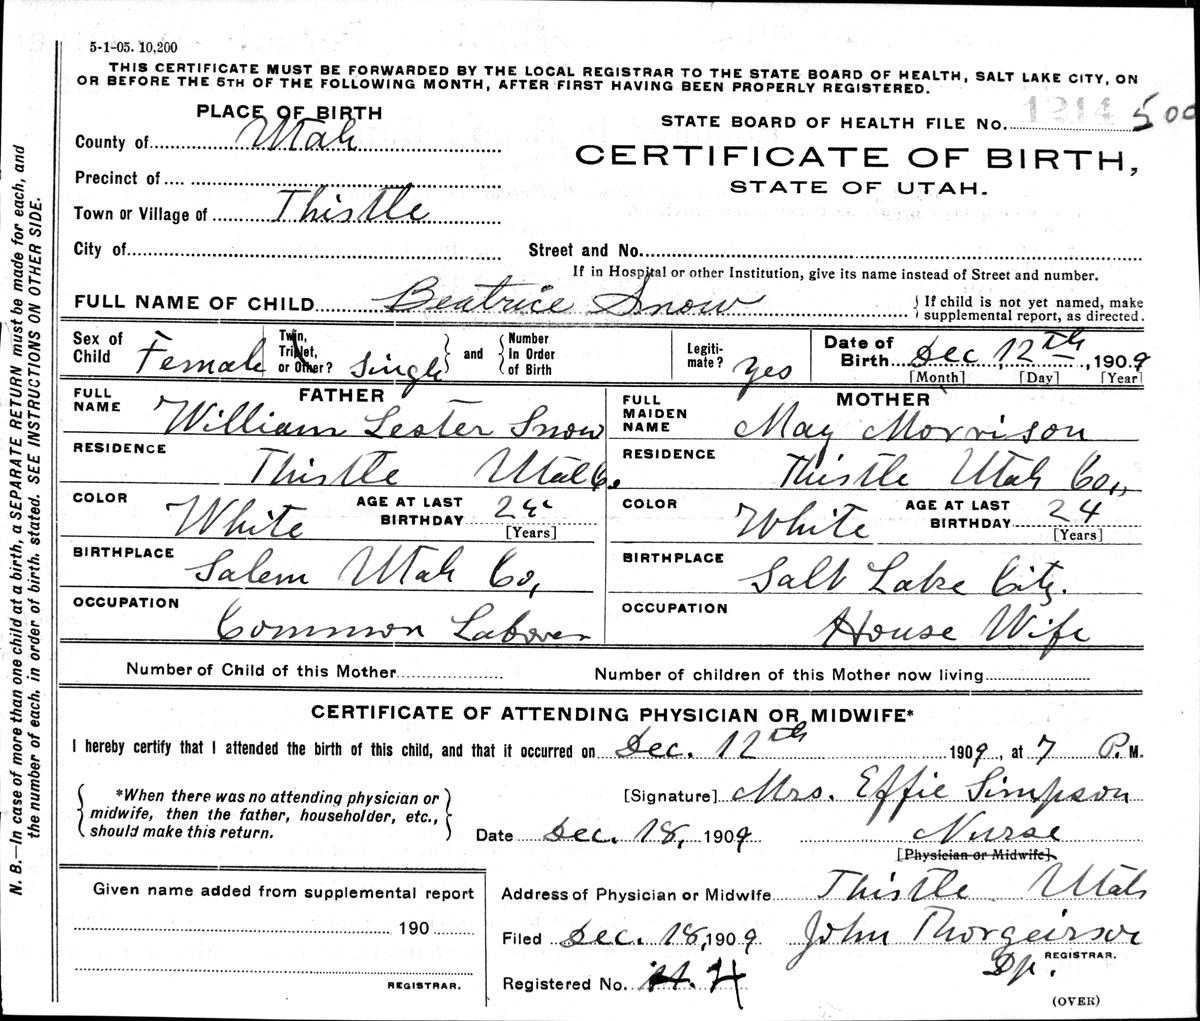 5-1-05. 10,200
THIS CERTIFICATE MUST BE FORWARDED BY THE LOCAL REGISTRAR TO THE STATE BOARD OF HEALTH, SALT LAKE CITY, ON
OR BEFORE THE 5TH OF THE FOLLOWING MONTH, AFTER FIRST HAVING BEEN PROPERLY REGISTERED.
PLACE OF BIRTH
County of Utah
Precinct of
Town or Village of Thistle
City of
STATE BOARD OF HEALTH FILE No. 1214 500
CERTIFICATE OF BIRTH,
STATE OF UTAH.
Street and No.
If in Hospital or other Institution, give its name instead of Street and number.
FULL NAME OF CHILD Beatrice Snow
If child is not yet named, make
supplemental report, as directed.
Sex of Child Female
Twin, Triplet, or Other? Single
and
Number In Order of Birth
Legiti-mate? Yes
Date of Birth Dec 12th, 1909
[Month] [Day] [Year]
FATHER
FULL NAME William Lester Snow
RESIDENCE Thistle Utah Co.
COLOR White
AGE AT LAST BIRTHDAY
[Years]
BIRTHPLACE Salem Utah Co,
OCCUPATION Common Laborer
MOTHER
FULL MAIDEN NAME May Morrison
RESIDENCE Thistle Utah Co.,
COLOR White
AGE AT LAST BIRTHDAY 24
[Years]
BIRTHPLACE Salt Lake City.
OCCUPATION House Wife
Number of Child of this Mother
Number of children of this Mother now living
CERTIFICATE OF ATTENDING PHYSICIAN OR MIDWIFE*
I hereby certify that I attended the birth of this child, and that it occurred on Dec. 12th 1909, at 7 P.M.
*When there was no attending physician or
midwife, then the father, householder, etc.,
should make this return.
[Signature] Mrs. Effie Simpson
Date Dec. 18, 1909 Nurse
[Physician or Midwife]
Given name added from supplemental report
190
REGISTRAR.
Address of Physician or Midwife Thistle Utah
Filed Dec. 18, 1909 John Thorgeirson
REGISTRAR.
Dp.
Registered No. 44
(OVER)
N. B.—In case of more than one child at a birth, a SEPARATE RETURN must be made for each, and
the number of each, in order of birth, stated. SEE INSTRUCTIONS ON OTHER SIDE.